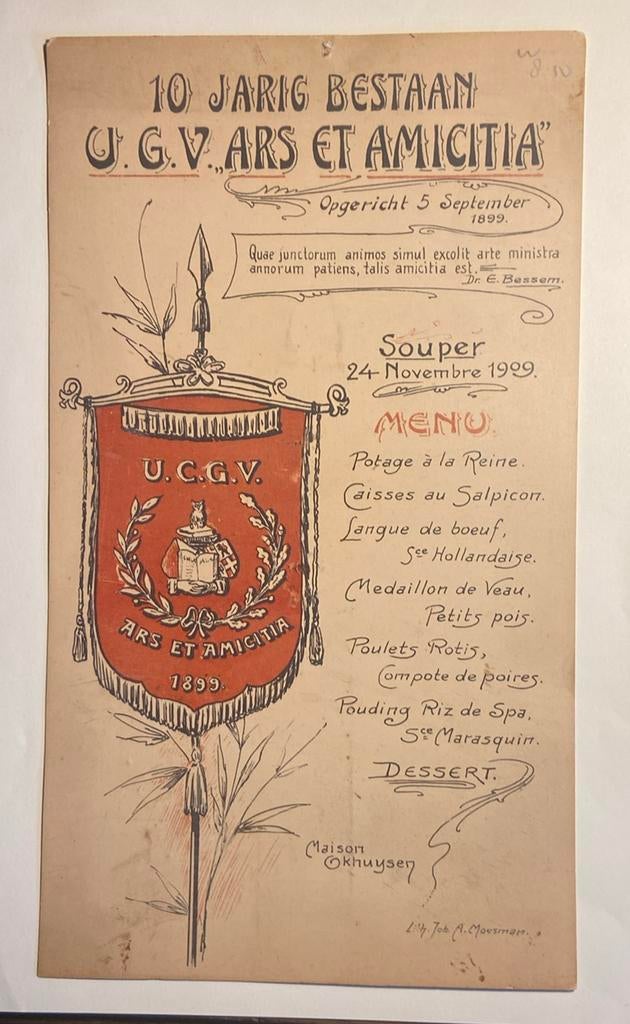 10 JARIG BESTAAN
U.G.V. „ARS ET AMICITIA”
Opgericht 5 September
1899.
Quae junctorum animos simul excolit arte ministra
annorum patiens, talis amicitia est.
Dr. E. Bessem.
Souper
24 Novembre 1909.
MENU
Potage à la Reine.
Caisses au Salpicon.
Langue de boeuf,
Sce Hollandaise.
Medaillon de Veau,
Petits pois.
Poulets Rotis,
Compote de poires.
Pouding Riz de Spa,
Sce Marasquin.
DESSERT.
U.C.G.V.
ARS ET AMICITIA
1899.
Maison
Okhuysen
Lith. Joh. A. Moesman.